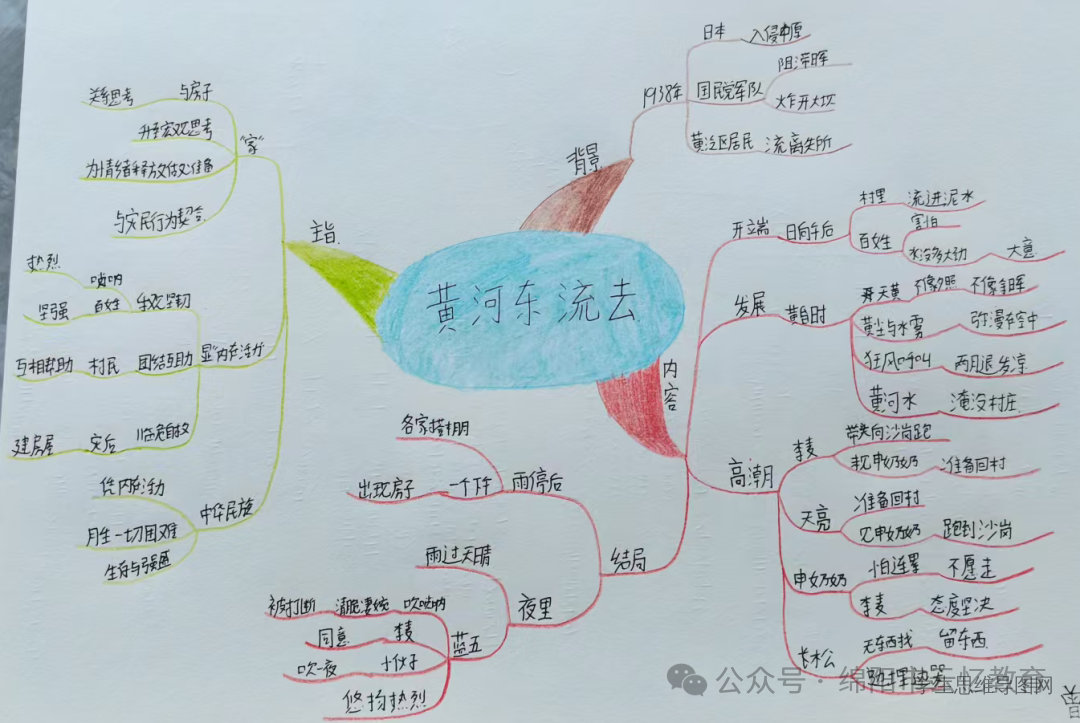 黄河东流去
背景
1938年
日本 入侵中原
国民党军队
阻滞日晖
炸开大坝
黄泛区居民 流离失所
内容
开端 日向午后
村里 流进泥水
百姓
害怕
水没多大劲 大意
发展 黄昏时
不像夕照 不像金晖
黄尘与水雾 弥漫在空中
狂风呼叫 两月退发凉
黄河水 淹没村庄
高潮
李麦
带头向沙岗跑
申奶奶 准备回村
天亮
准备回村
见申奶奶 跑到沙岗
申奶奶
怕连累 不愿走
李麦 态度坚决
长松
无东西找 留东西
结局
雨停后
各家搭棚
一个下午 出现房子
夜里
雨过天晴
蓝五
吹唢呐 清脆凄婉 被打断
李麦 同意
小伙子 吹一夜
悠扬热烈
主旨
"家"
与房子 关系思考
升至宏观思考
为情绪释放做准备
与灾民行为契合
显"内在活力"
唢呐 热烈
百姓 坚强
团结互助 村民 互相帮助
临危自救 灾后 建房屋
中华民族
内在活力
一切困难
公众号·绵阳
学生思维导图网